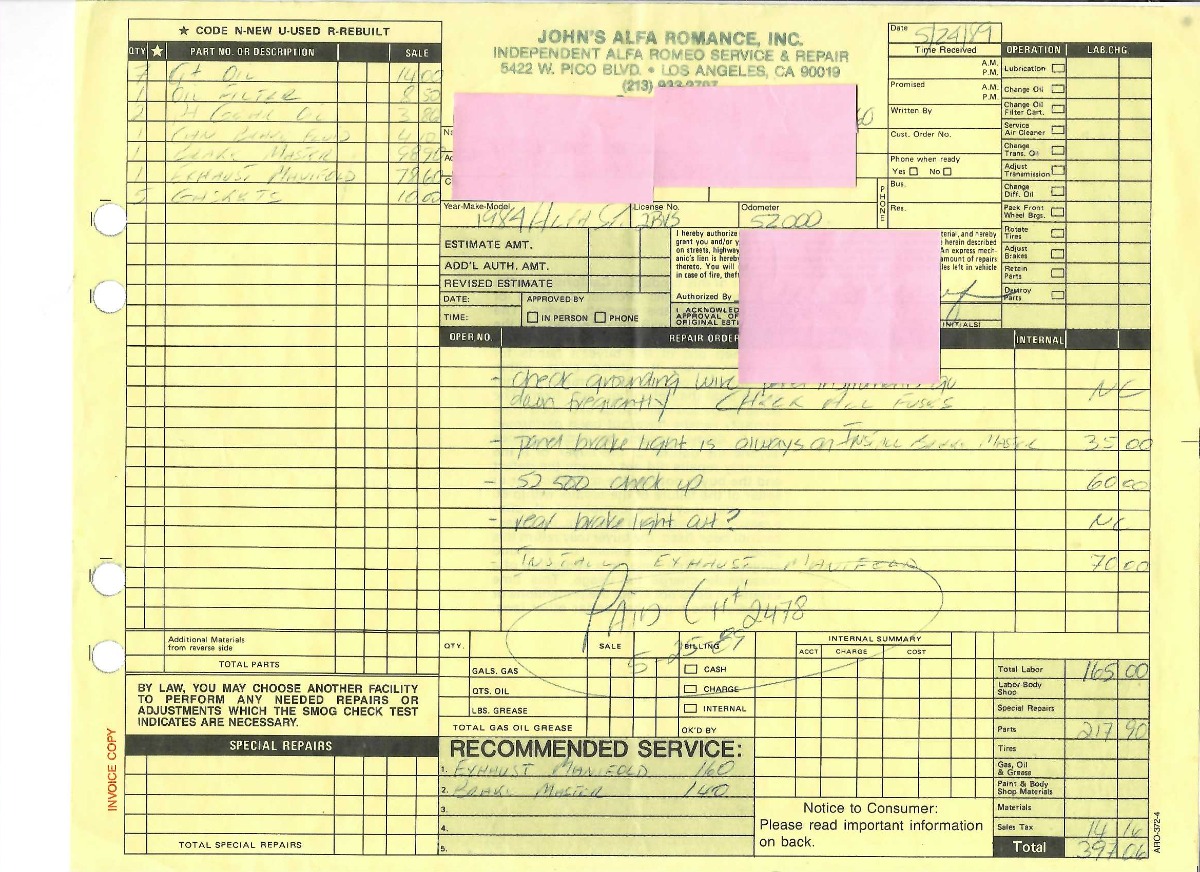 ★ CODE N-NEW U-USED R-REBUILT
QTY ★ PART NO. OR DESCRIPTION SALE
7 Qt OIL 14 00
1 OIL FILTER 8 50
2 GEAR OIL 3 80
1 CAN BRAKE FLUID 4 10
1 BRAKE MASTER 98 90
1 EXHAUST MANIFOLD 78 60
5 GASKETS 10 00
Additional Materials
from reverse side
TOTAL PARTS
BY LAW, YOU MAY CHOOSE ANOTHER FACILITY
TO PERFORM ANY NEEDED REPAIRS OR
ADJUSTMENTS WHICH THE SMOG CHECK TEST
INDICATES ARE NECESSARY.
SPECIAL REPAIRS
TOTAL SPECIAL REPAIRS
INVOICE COPY
JOHN'S ALFA ROMANCE, INC.
INDEPENDENT ALFA ROMEO SERVICE & REPAIR
5422 W. PICO BLVD. • LOS ANGELES, CA 90019
(213)
Year-Make-Model 1984 ALFA License No. Odometer 52000
ESTIMATE AMT.
ADD'L AUTH. AMT.
REVISED ESTIMATE
DATE: APPROVED BY
TIME: IN PERSON PHONE
I hereby authorize
grant you and/or y
on streets, highway
anic's lien is hereby
thereto. You will
in case of fire, theft
Authorized By
I ACKNOWLED
APPROVAL OF
ORIGINAL ESTI
terial, and hereby
herein described
An express mech-
amount of repairs
les left in vehicle
INITIALS)
Date 5/24/89
Time Received
A.M.
P.M.
Promised A.M.
P.M.
Written By
Cust. Order No.
Phone when ready
Yes No
PHONE
Bus.
Res.
OPERATION LAB.CHG.
Lubrication
Change Oil
Change Oil
Filter Cart.
Service
Air Cleaner
Change
Trans. Oil
Adjust
Transmission
Change
Diff. Oil
Pack Front
Wheel Brgs.
Rotate
Tires
Adjust
Brakes
Retain
Parts
Destroy
Parts
OPER.NO. REPAIR ORDER INTERNAL
- check grounding wire panel instruments go NC
down frequently CHECK ALL FUSES
- panel brake light is always on INSTALL BRAKE MASTER 35 00
- 52 500 check up 60 00
- rear brake light out? NC
- INSTALL EXHAUST MANIFOLD 70 00
PAID CH# 2478
5-25-89
QTY. SALE BILLING
GALS. GAS CASH
QTS. OIL CHARGE
LBS. GREASE INTERNAL
TOTAL GAS OIL GREASE OK'D BY
INTERNAL SUMMARY
ACCT CHARGE COST
RECOMMENDED SERVICE:
1. EXHAUST MANIFOLD 160
2. BRAKE MASTER 140
3.
4.
5.
Notice to Consumer:
Please read important information
on back.
Total Labor 165 00
Labor Body
Shop
Special Repairs
Parts 217 90
Tires
Gas, Oil
& Grease
Paint & Body
Shop Materials
Materials
Sales Tax 14 16
Total 397 06
ARO-372-4